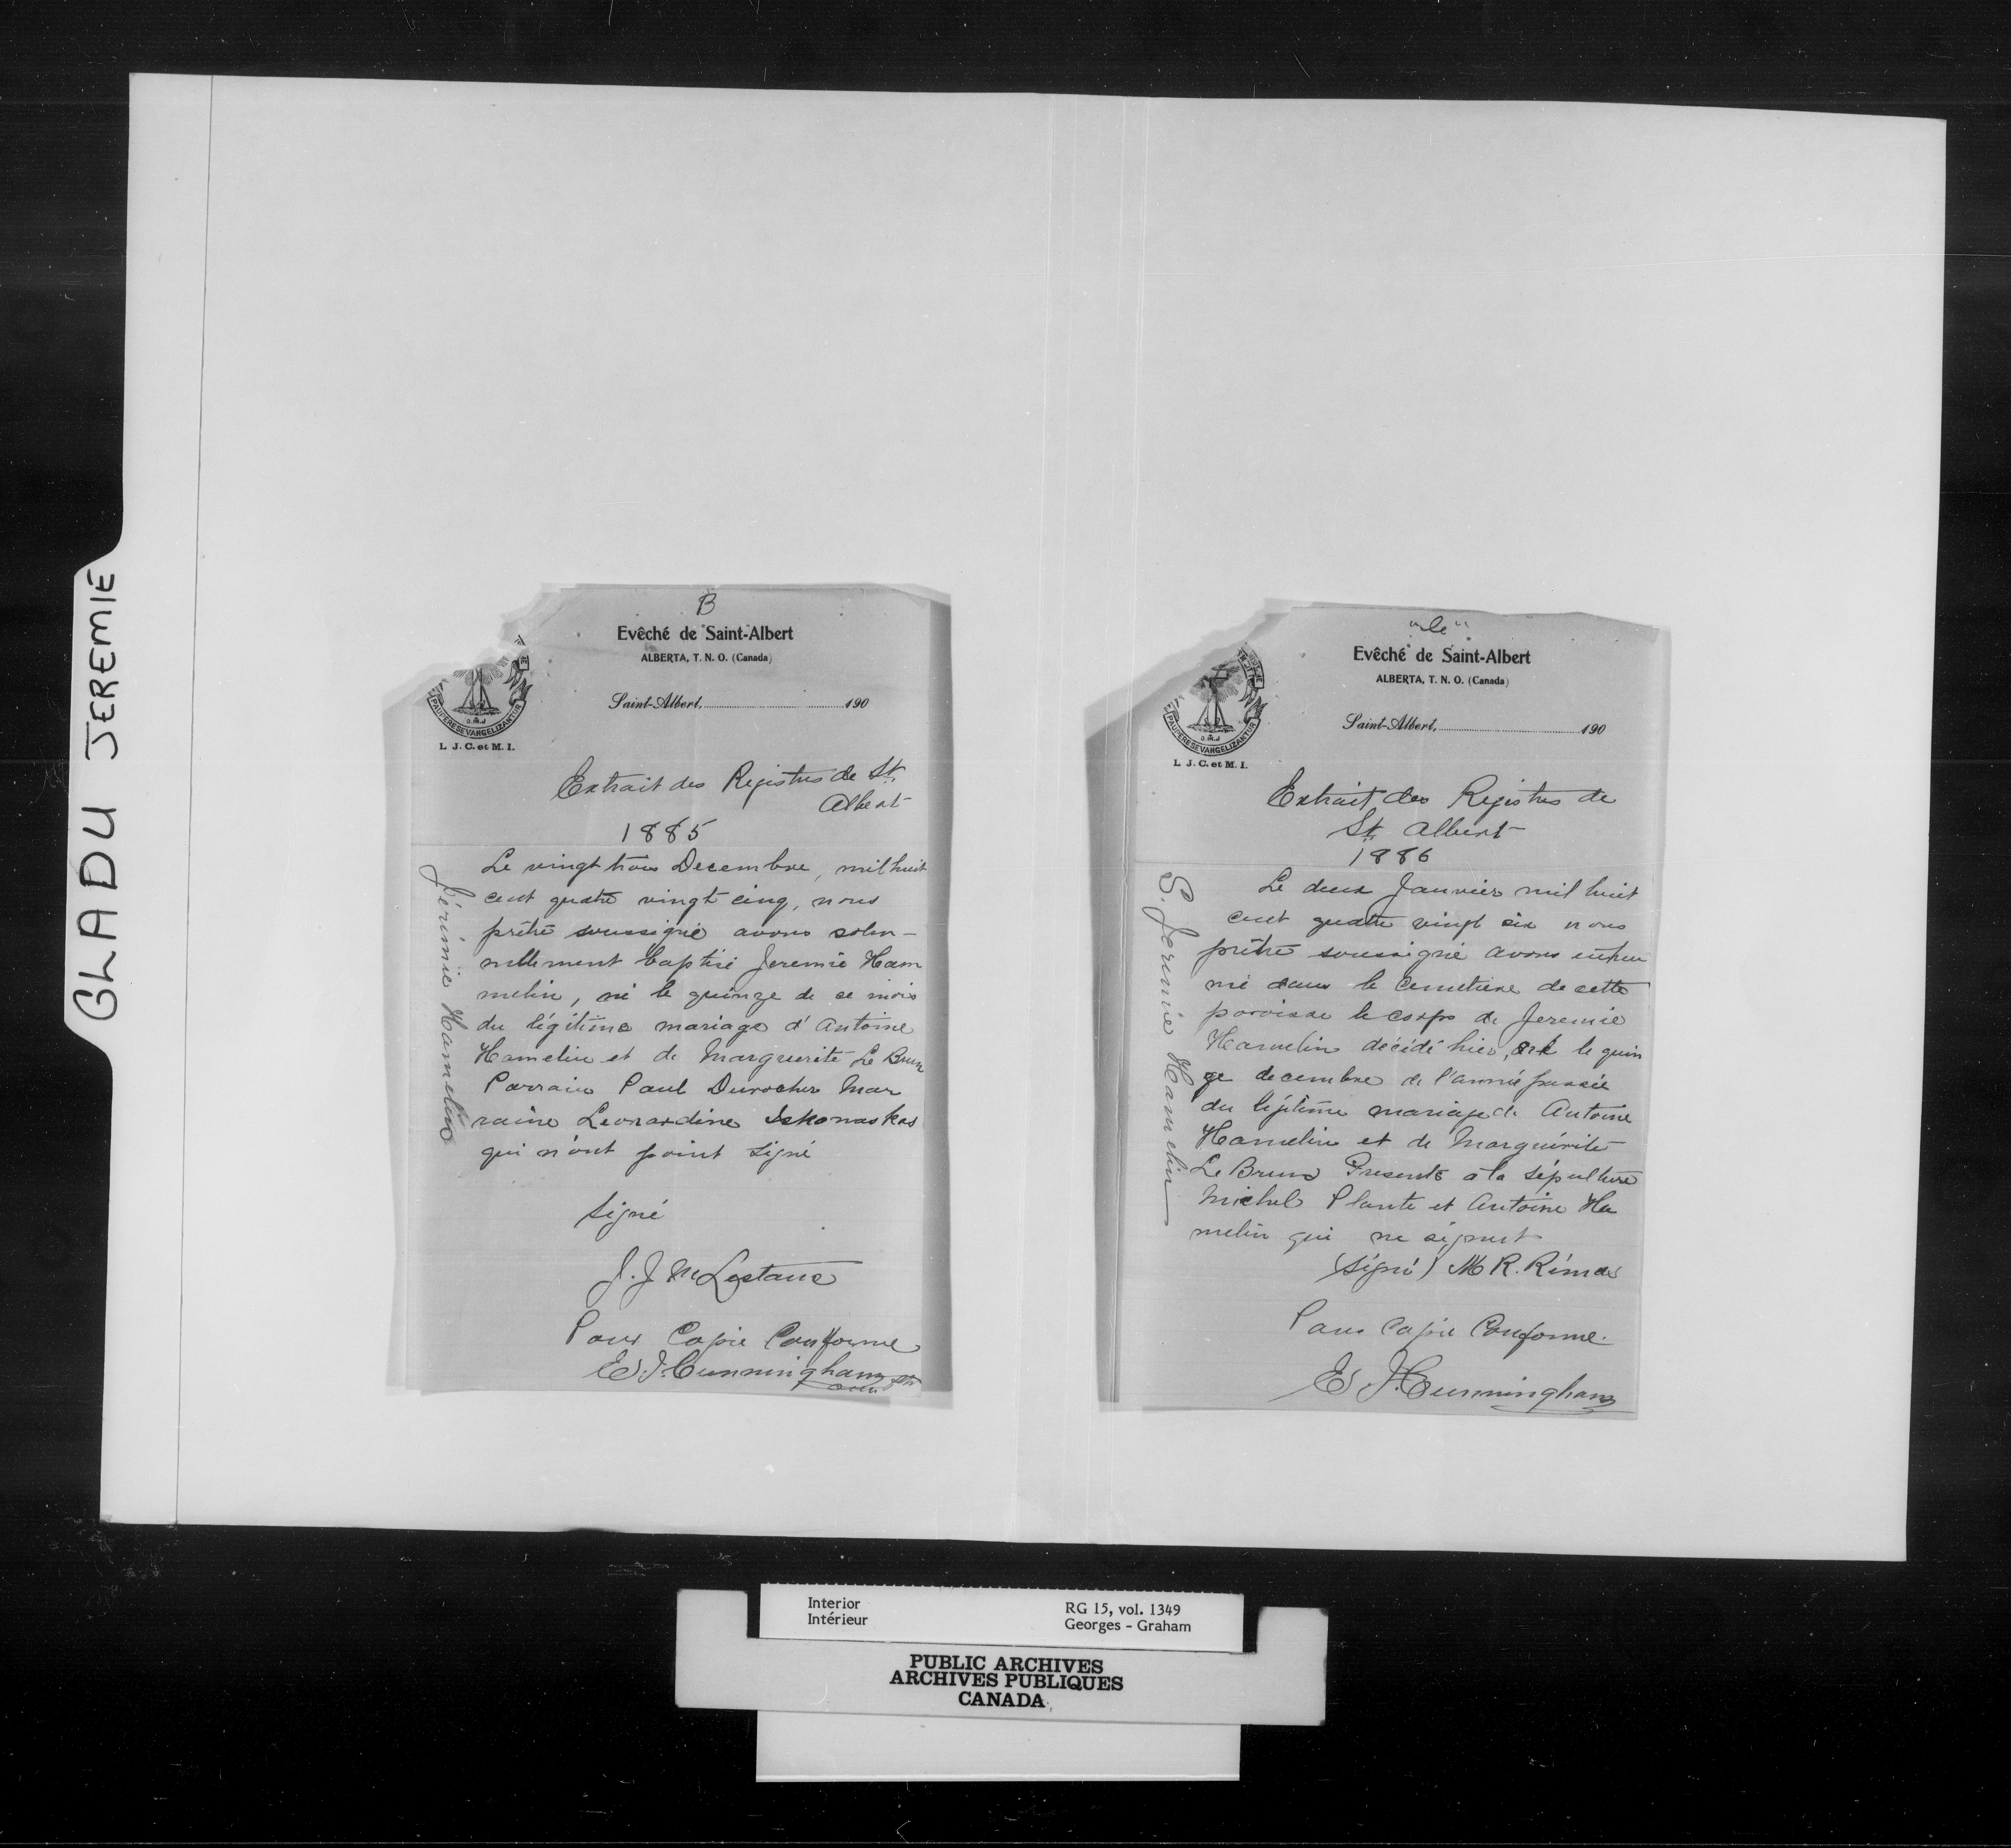 GLADU JEREMIE
B
Evêché de Saint-Albert
ALBERTA, T. N. O. (Canada)
Saint-Albert, 190
PAUPERES EVANGELIZANTUR
O.M.J
L. J. C. et M. I.
Extrait des Registres de St.
Albert
1885
Jérémie Hamelin
Le vingt trois Decembre, mil huit
cent quatre vingt cinq, nous
prêtre soussigné avons solen-
nellement baptisé Jeremie Ham
melin, né le quinze de ce mois
du légitime mariage d'Antoine
Hamelin et de Marguerite Le Brun
Parrain Paul Durocher Mar
raine Leonardine
qui n'ont point signé
signé
J. J. M Lestanc
Pour Copie Conforme
Ed. J. Cunningham ptr
"C"
Evêché de Saint-Albert
ALBERTA, T. N. O. (Canada)
Saint-Albert, 190
PAUPERES EVANGELIZANTUR
O.M.J
L. J. C. et M. I.
Extrait des Registres de
St. Albert
1886
S. Jeremie Hamelin
Le deux Janvier mil huit
cent quatre vingt six nous
prêtre soussigné avons inhu
mé dans le cemetiere de cette
paroisse le corps de Jeremie
Hamelin décédé hier, né le quin
ze decembre de l'année passée
du légitime mariage de Antoine
Hamelin et de Marguérite
Le Brun Presents à la sépulture
Michel Plante et Antoine Ha
melin qui ne signent
(Signé) M R. Rémas
Pour Copie Conforme.
Ed. J. Cunningham
Interior
Intérieur
RG 15, vol. 1349
Georges - Graham
PUBLIC ARCHIVES
ARCHIVES PUBLIQUES
CANADA